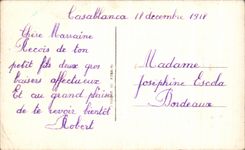 Casablanca 11 decembre 1918
Chère Marraine
Recois de ton
petit fils deux gros
baisers affectueux
Et au grand plaisir
de te revoir bientôt
Robert
Madame
Josephine Escda
Bordeaux